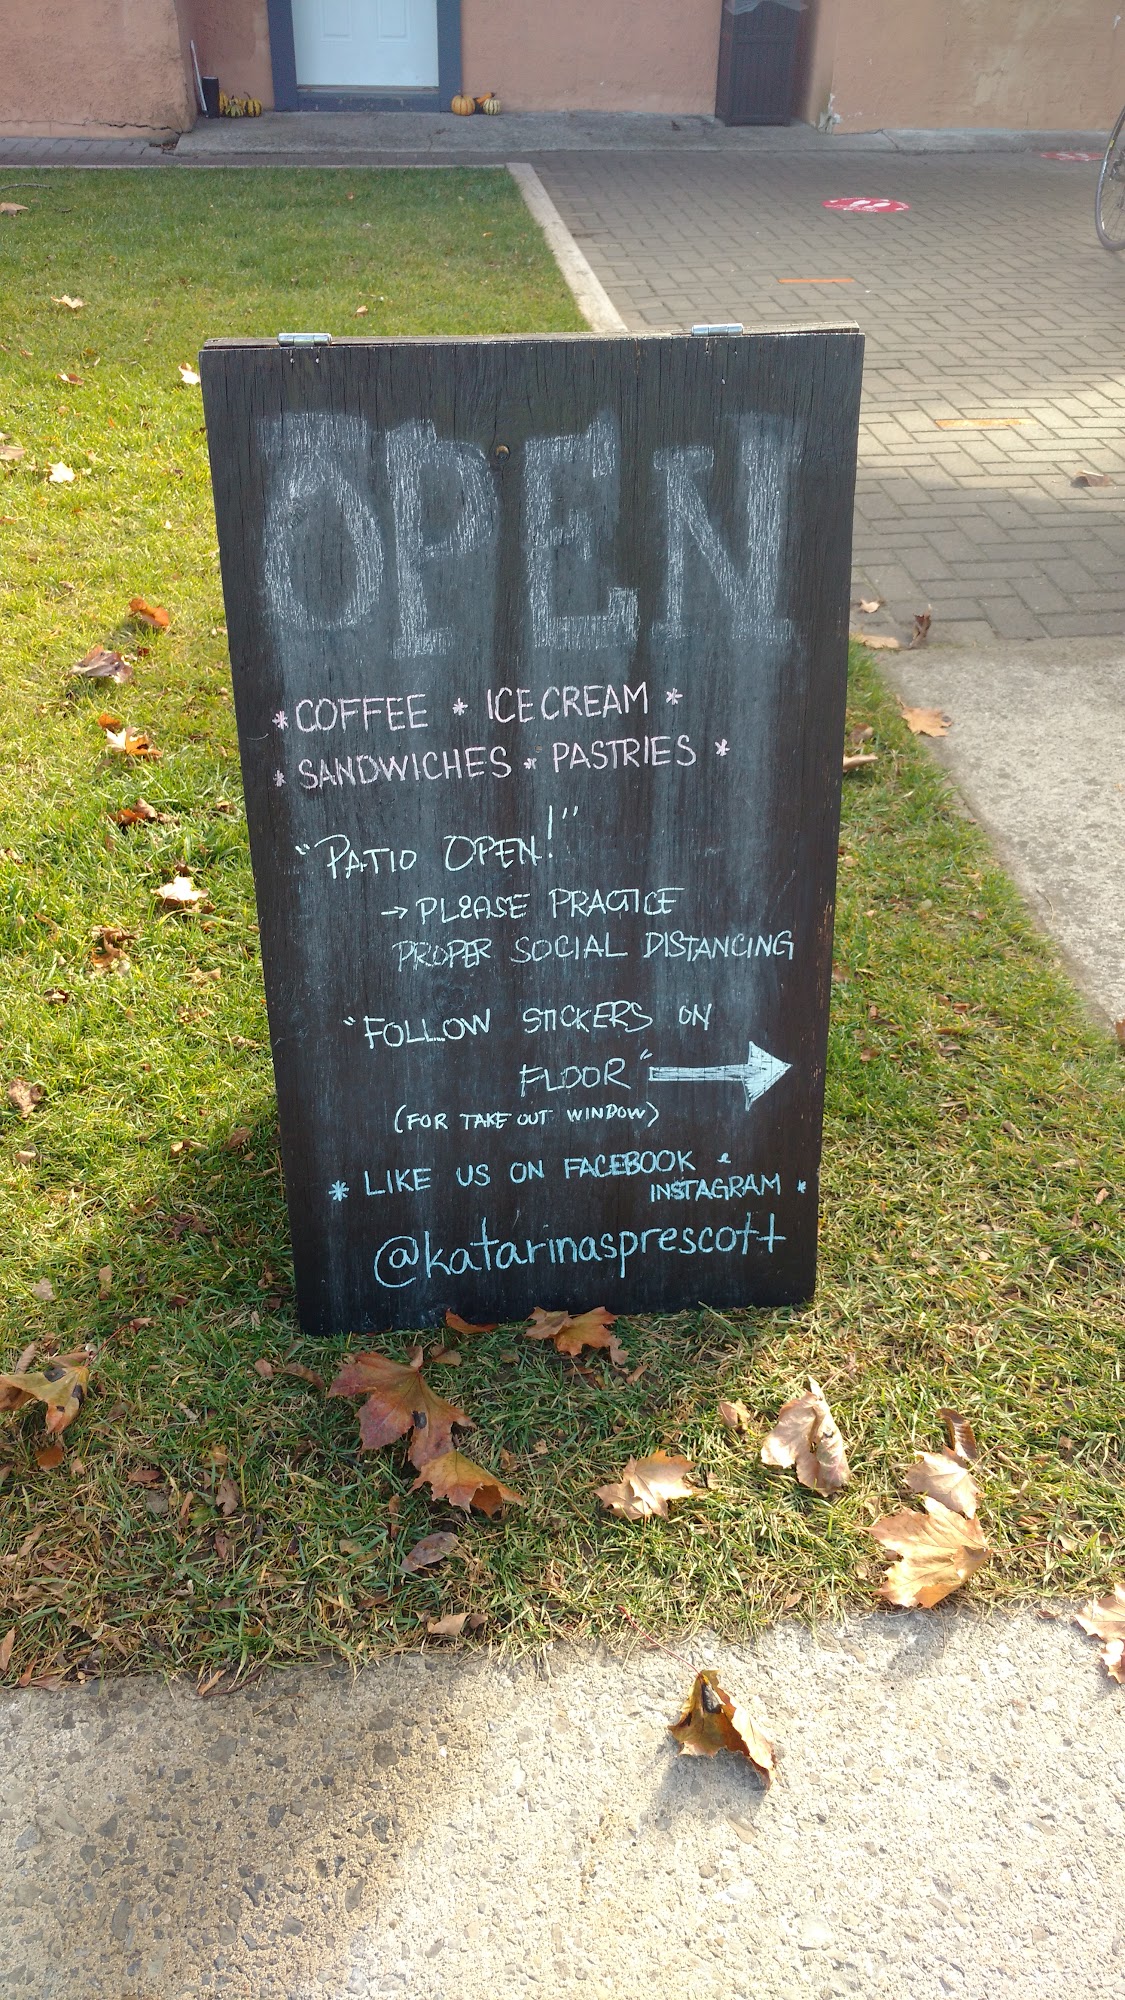 OPEN
* COFFEE * ICE CREAM *
* SANDWICHES * PASTRIES *
"PATIO OPEN!"
→ PLEASE PRACTICE
PROPER SOCIAL DISTANCING
"FOLLOW STICKERS ON
FLOOR" →
(FOR TAKE OUT WINDOW)
* LIKE US ON FACEBOOK &
INSTAGRAM *
@katarinasprescott